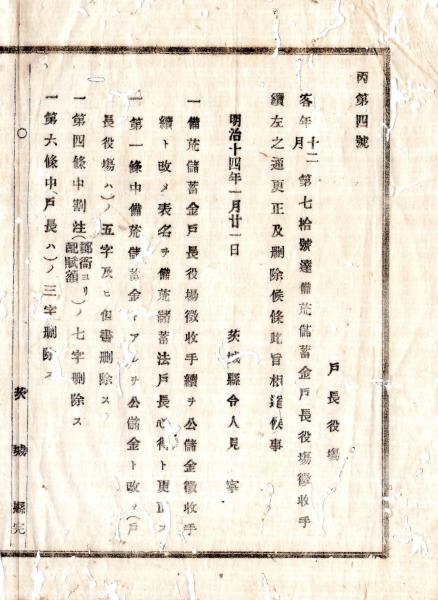 丙第四號
戸長役場
客年十二月第七拾號達備荒儲蓄金戸長役場徴收手
續左之通更正及刪除候條此旨相達候事
明治十四年一月廿一日 茨城縣令人見寧
一備荒儲蓄金戸長役場徴收手續ヲ公儲金徴收手
續ト改メ表名ヲ備荒儲蓄法戸長心得ト更正ス
一第一條中備荒儲蓄金トアルヲ公儲金ト改メ(戸
長役場ハ)ノ五字及ヒ但書刪除ス
一第四條中割注(郡衙ヨリ配賦額)ノ七字刪除ス
一第六條中(戸長ハ)ノ三字刪除ス
茨城縣